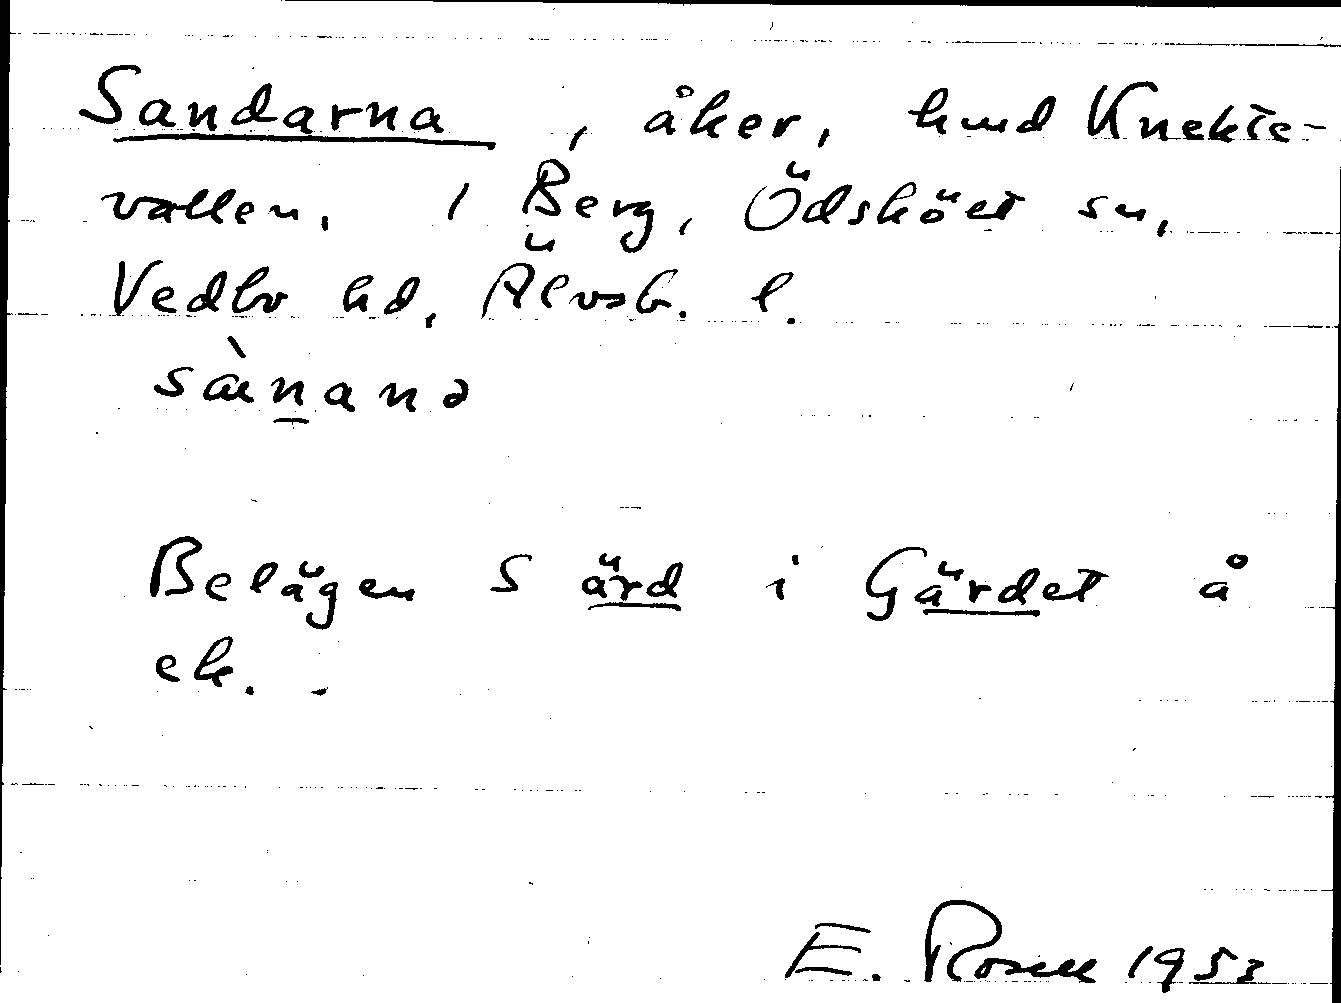 Sandarna, åker, hmd Knekte-
vallen. 1 Berg, Ödsköet sn,
Vedbo hd, Älvsb. l.
sànana
Belägen S ärd i Gärdet å
ek.
E. Rosell 1953